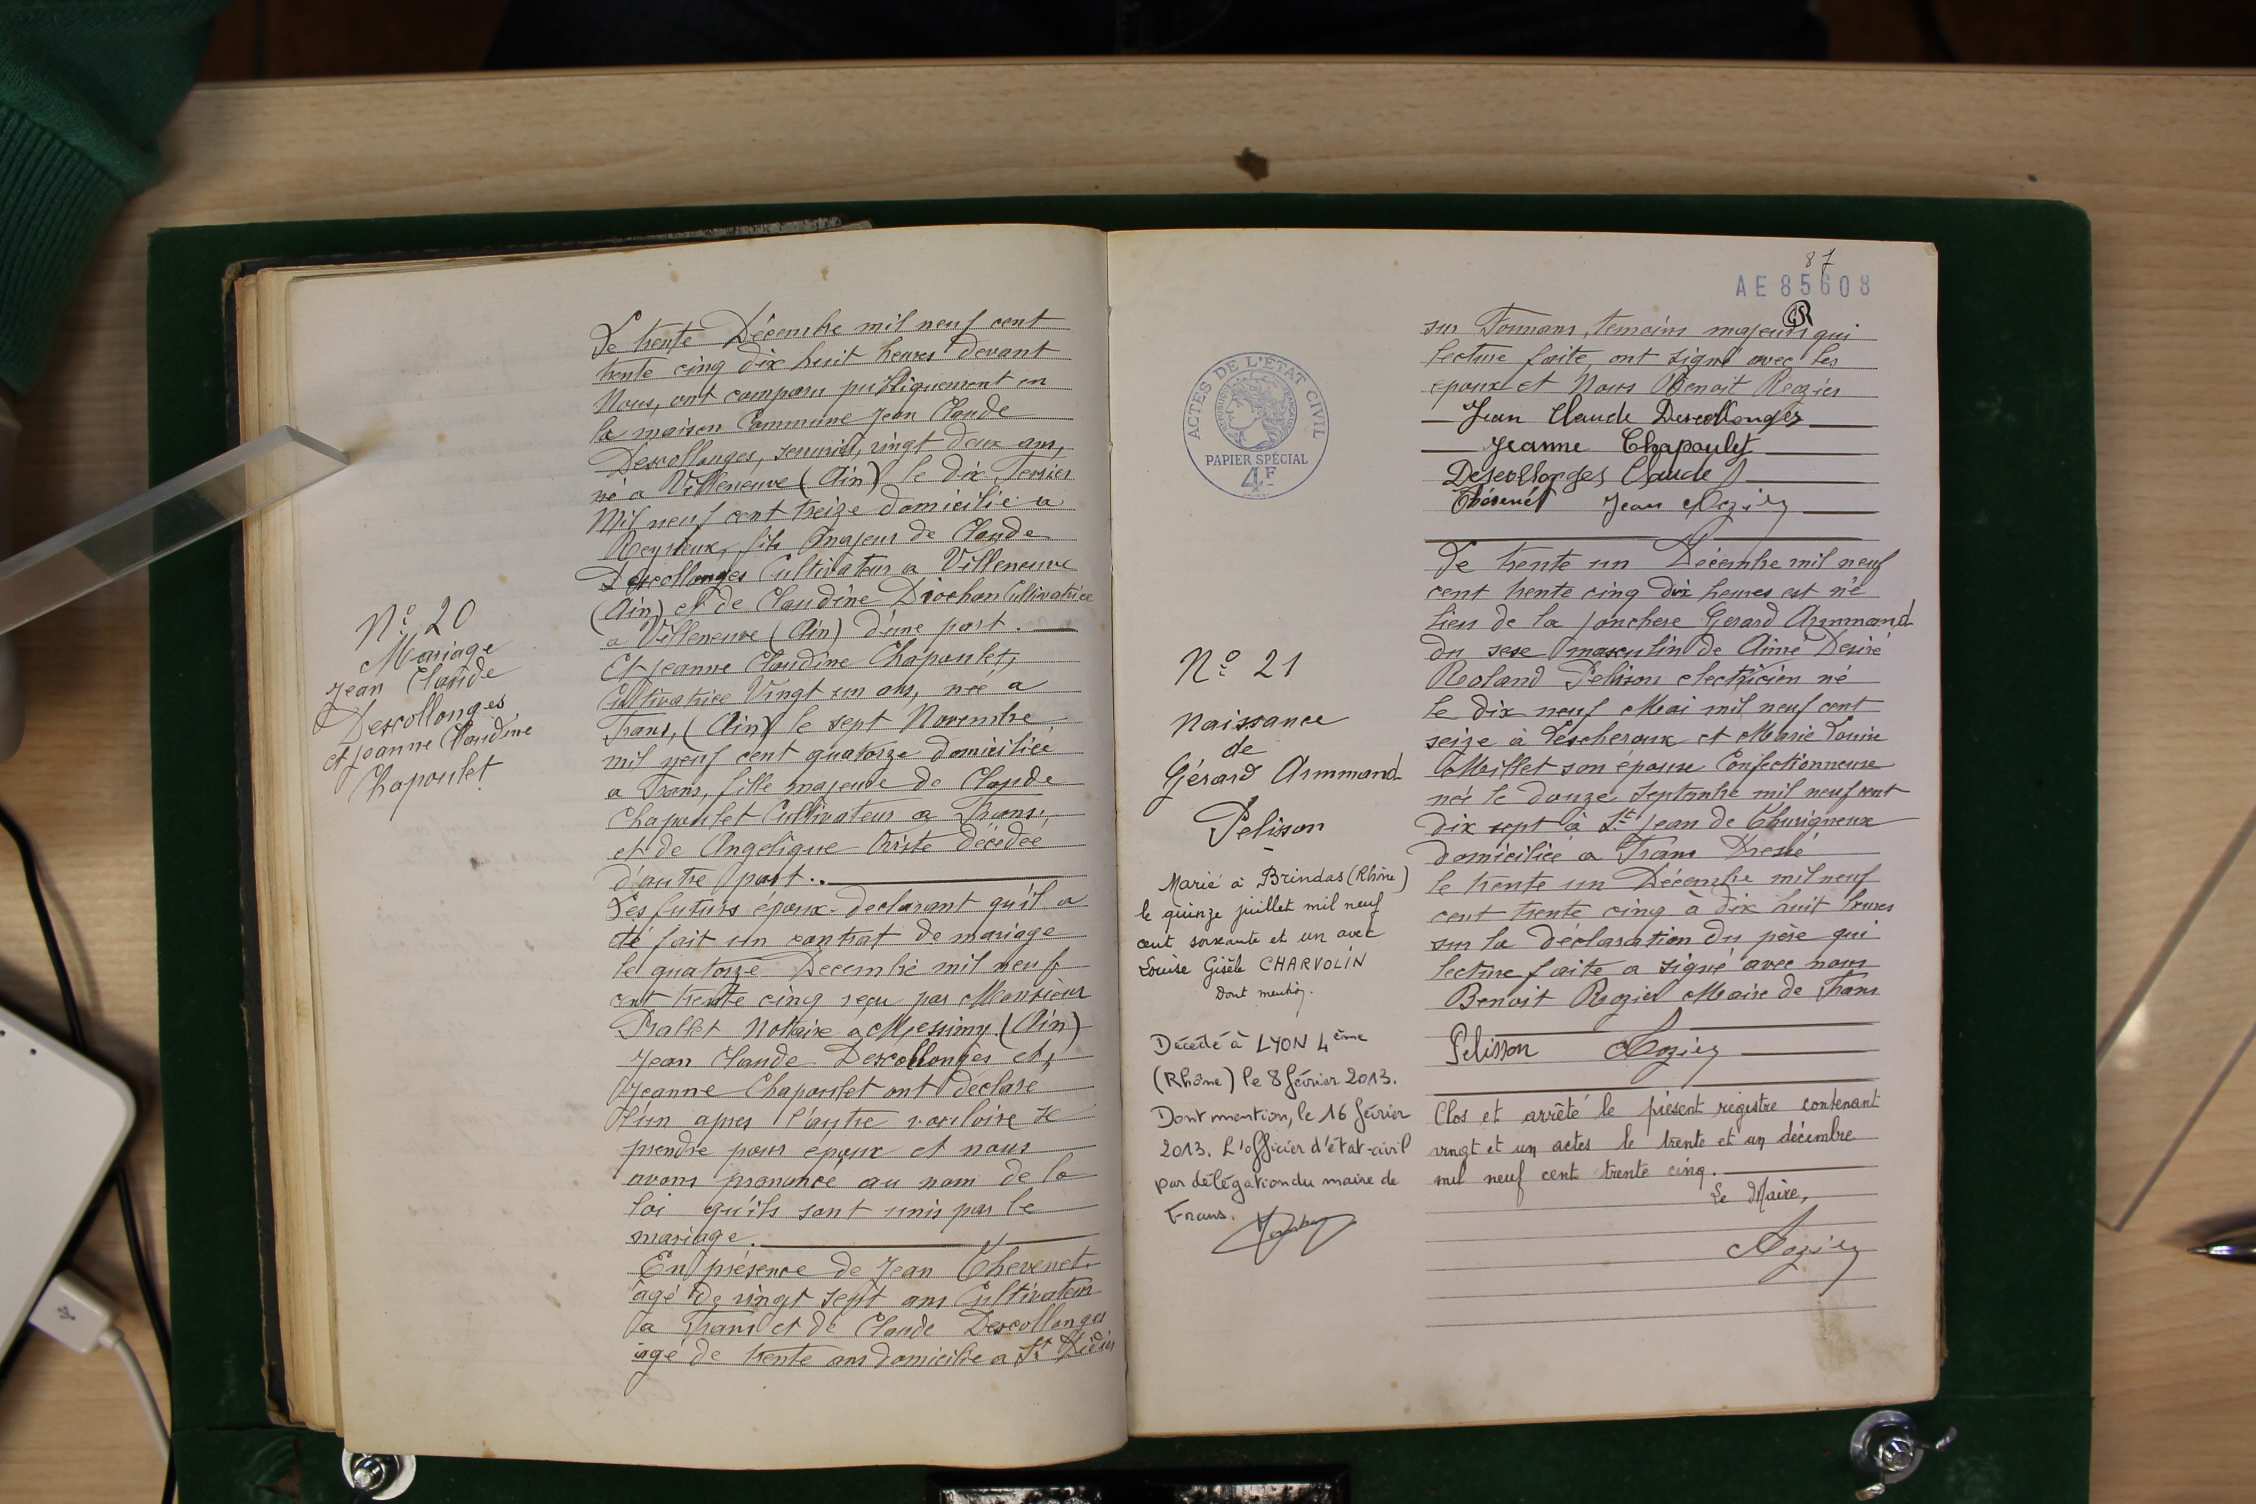 N° 20
Mariage
Jean Claude
Descollonges
et Jeanne Claudine
Chapoulet
Le trente Décembre mil neuf cent
trente cinq dix huit heures devant
Nous, ont comparu publiquement en
la maison Commune Jean Claude
Descollonges, serrurier, vingt deux ans,
né a Villeneuve (Ain) le dix
Mil neuf cent treize domicilié a
Reyrieux, fils majeur de Claude
Descollonges Cultivateur a Villeneuve
(Ain) et de Claudine Cultivatrice
a Villeneuve (Ain) d'une part.
Et Jeanne Claudine Chapoulet,
Cultivatrice Vingt un ans, née a
Frans, (Ain) le sept Novembre
mil neuf cent quatorze domiciliée
a Frans, fille majeure de Claude
Chapoulet Cultivateur a Frans,
et de Angelique décédée
d'autre part..
Les futurs époux declarant qu'il a
été fait un contrat de mariage
le quatorze Decembre mil neuf
cent trente cinq reçu par Monsieur
Notaire a Messimy (Ain)
Jean Claude Descollonges et,
Jeanne Chapoulet ont déclaré
l'un apres l'autre vouloir se
prendre pour époux et nous
avons prononcé au nom de la
loi qu'ils sont unis par le
mariage.
En présence de Jean Thevenet
agé de vingt sept ans Cultivateur
a Frans et de Claude Descollonges
agé de trente ans domicilié a St Didier
87
AE 85608
ACTES DE L'ÉTAT CIVIL
PAPIER SPÉCIAL
4F
sur Formans, temoins majeurs qui
lecture faite ont signé avec les
epoux et Nous Benoit Rozier
Jean Claude Descollonges
Jeanne Chapoulet
Descollonges Claude
Thévenet Jean Rozier
N° 21
Naissance
de
Gérard Ammand
Pelisson
Marié à Brindas (Rhône)
le quinze juillet mil neuf
cent soixante et un avec
Louise Gisèle CHARVOLIN
Dont mention.
Décédé à LYON 4ème
(Rhône) le 8 février 2013.
Dont mention, le 16 février
2013. L'officier d'état-civil
par délégation du maire de
Frans.
Le trente un Décembre mil neuf
cent trente cinq dix heures est né
lieu de la jonchere Gerard Ammand
du sexe masculin de Aimé Desiré
Roland Pelisson electricien né
le dix neuf Mai mil neuf cent
seize à Lescheroux et Marie Louise
Millet son épouse Confectionneuse
née le douze Septembre mil neuf cent
dix sept à St Jean de Thurigneux
domiciliée a Frans Dressé
le trente un Décembre mil neuf
cent trente cinq à dix huit heures
sur la déclaration du père qui
lecture faite a signé avec nous
Benoit Rozier Maire de Frans
Pelisson Rozier
Clos et arrêté le présent régistre contenant
vingt et un actes le trente et un décembre
mil neuf cent trente cinq.
Le Maire,
Rozier